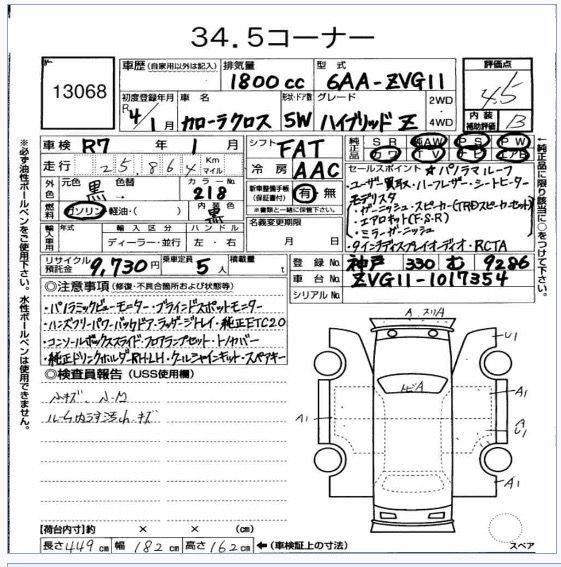 34.5コーナー
13068
車歴 (自家用以外は記入) 排気量 型式
1800 cc 6AA-ZVG11
評価点
4.5
初度登録年月 車名 形状・ドア数 グレード 2WD・4WD
R4/1月 カローラクロス 5W ハイブリッド Z
内装補助評価 B
車検 R7 年 1 月
シフト FAT
純正品 SR 純AW PS PW
カワ TV ナビ エアB
走行 25,864 Km マイル
冷房 AAC
外色 元色 黒 色替 カラーNo. 218
新車整備手帳(保証書付) 有 無
※書類と一緒に保管して下さい。
燃料 ガソリン・軽油・( ) 内装色 黒
名義変更期限
月 日
輸入車用 年式 輸入区分 ハンドル
ディーラー・並行 左・右
セールスポイント ☆パノラマルーフ
・ユーザー買取・ハーフレザー・シートヒーター
モデリスタ
・ガーニッシュ・スピーカー(TRDスピーカーセット)
・エアロキット(F.S.R)
・ミラーガーニッシュ
・9インチディスプレイオーディオ・RCTA
リサイクル預託金 9,730円 乗車定員 5人 積載量 t
登録No. 神戸 330 む 9286
車台No. ZVG11-1017354
シリアルNo.
◎注意事項 (修復・不具合箇所および状態等)
・パノラミックビューモニター・ブラインドスポットモニター
・ハンズフリーパワーバックドア・ラッゲージトレイ・純正ETC2.0
・コンソールボックススライド・フロアランプセット・トノカバー
・純正ドリンクホルダRH・LH・クールシャインキット・スペアキー
◎検査員報告 (USS使用欄)
小キズ、小凹
ルーム内うす汚れ、キズ
A スリA
トビA
U1
A1
A1
A1
U1
A1
スペア
【荷台内寸】約 × × cm
長さ 449 cm 幅 182 cm 高さ 162 cm ←(車検証上の寸法)
※必ず油性ボールペンをご使用下さい。水性ボールペンは使用できません。
←純正品に限り該当に○をつけて下さい。